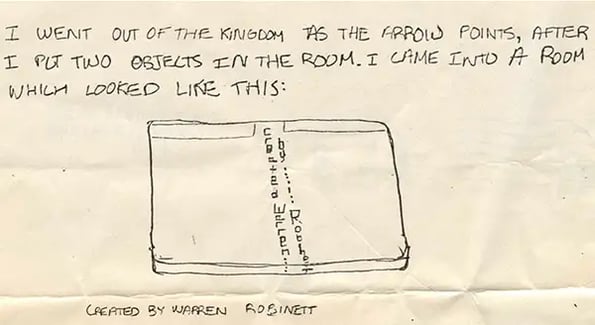 I WENT OUT OF THE KINGDOM AS THE ARROW POINTS, AFTER
I PUT TWO OBJECTS IN THE ROOM. I CAME INTO A ROOM
WHICH LOOKED LIKE THIS:
Created Warren
by
CREATED BY WARREN ROBINETT